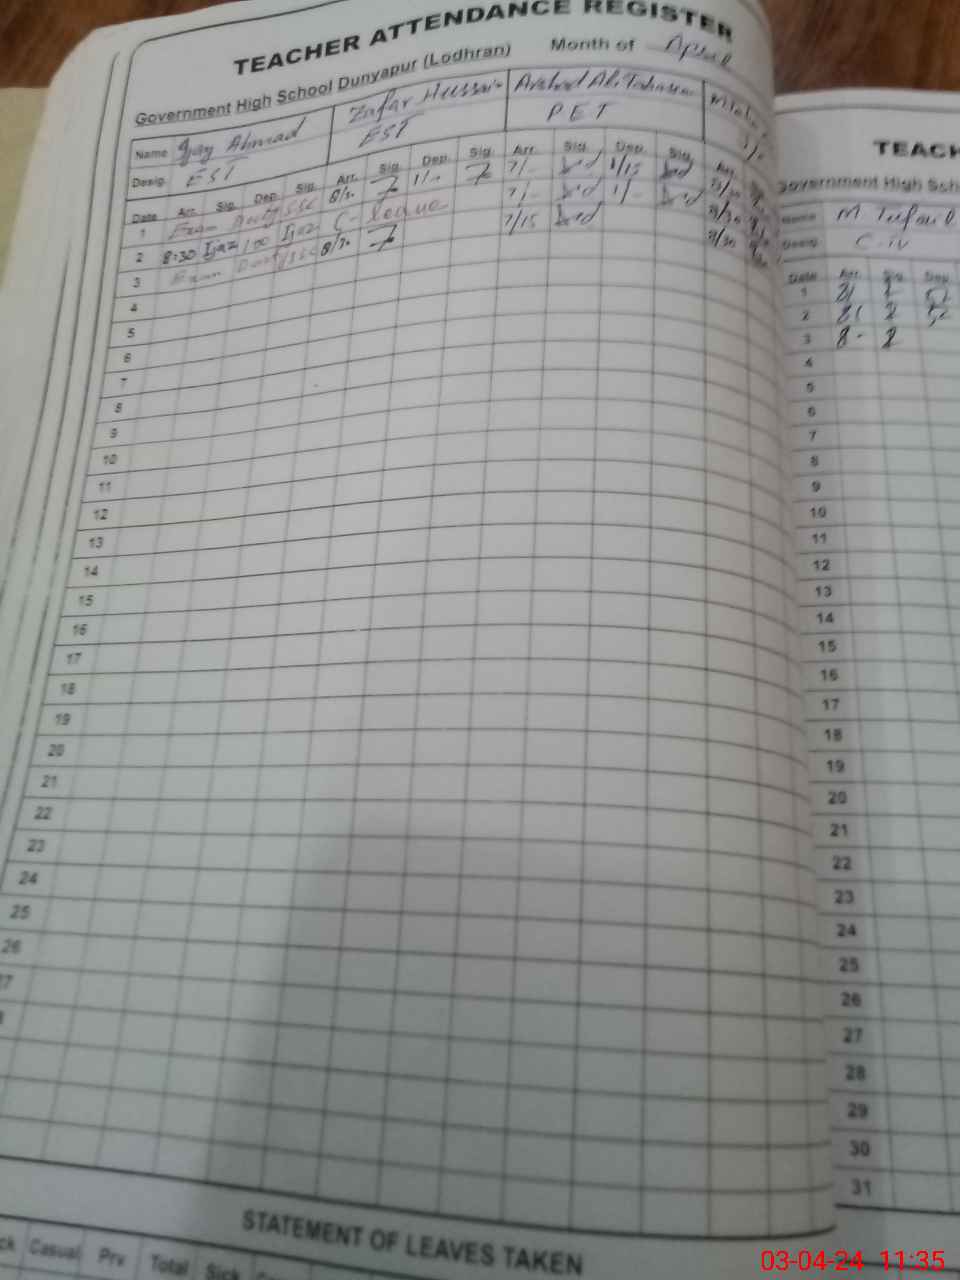 TEACHER ATTENDANCE REGISTER
Government High School Dunyapur (Lodhran) Month of April
Name Ijaz Ahmad Zafar Hussain Arshad Ali
Desig. EST EST PET
Date Arr. Sig. Dep. Sig. Arr. Sig. Dep. Sig. Arr. Sig. Dep. Sig. Arr.
1 Exam Duty SSC 8/30 1/- 7/- 1/15
2 8:30 Ijaz 1:00 Ijaz C-leave 7/- 1/-
3 Exam Duty SSC 8/30 7/15
4
5
6
7
8
9
10
11
12
13
14
15
16
17
18
19
20
21
22
23
24
25
26
STATEMENT OF LEAVES TAKEN
Casual Prv Total Sick
TEACH
Government High Sch
Name M Tufail
Desig C-iv
Date Arr. Sig. Dep.
1 8/
2 8/
3 8-
4
5
6
7
8
9
10
11
12
13
14
15
16
17
18
19
20
21
22
23
24
25
26
27
28
29
30
31
03-04-24 11:35